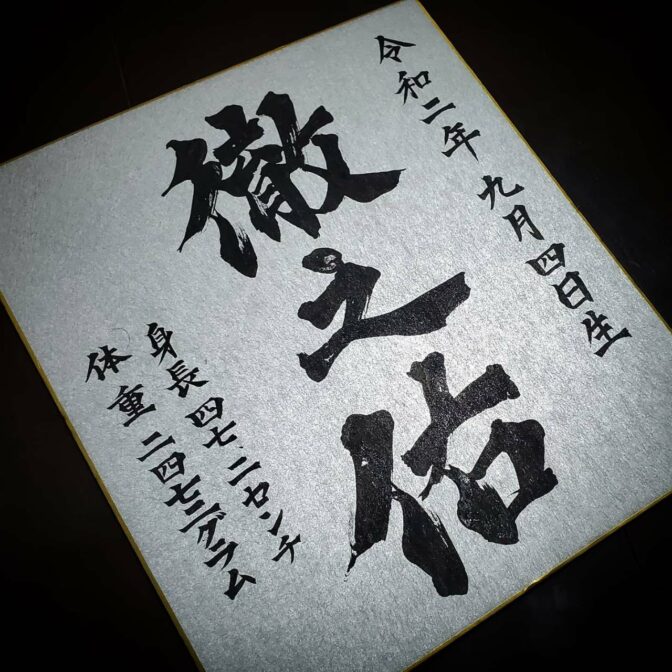 令和二年 九月四日生
徹之佑
身長 四七.二センチ
体重 二四七二グラム